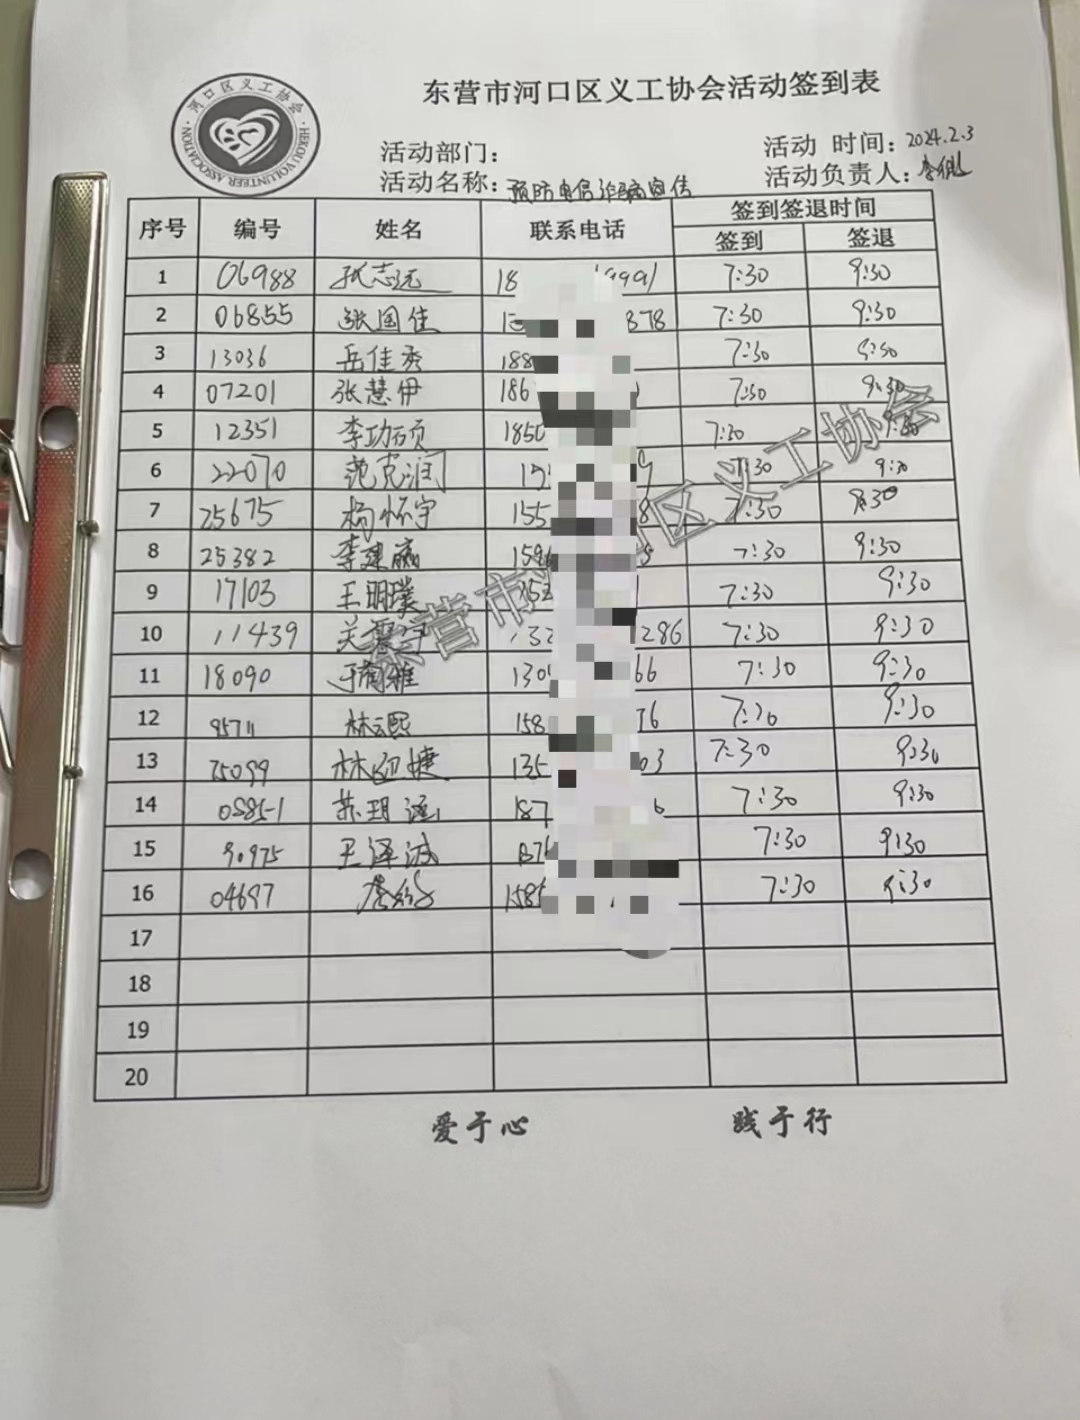 东营市河口区义工协会活动签到表
河口区义工协会
HEKOU VOLUNTEER ASSOCIATION
活动部门：
活动 时间：2024.2.3
活动名称：预防电信诈骗宣传
活动负责人：
序号 编号 姓名 联系电话 签到签退时间
签到 签退
1 06988 张志远 18 9:30 7:30
2 06855 张国佳 378 7:30 9:30
3 13036 岳佳秀 188 7:30 9:30
4 07201 张慧伊 186 7:30 9:30
5 12351 李功硕 1850 7:30 9:30
6 22070 范克润 7:30 9:30
7 25675 杨怀宇 155 8 7:30 9:30
8 25382 李建 158 7:30 9:30
9 17103 王明璞 7:30 9:30
10 11439 关 286 7:30 9:30
11 18090 于 130 66 7:30 9:30
12 林云熙 158 76 7:30 9:30
13 林 捷 135 03 7:30 9:30
14 苏玥 187 6 7:30 9:30
15 90975 王泽诚 7:30 9:30
16 04697 158 7:30 9:30
17
18
19
20
爱于心 践于行
东营市 口区义工协会